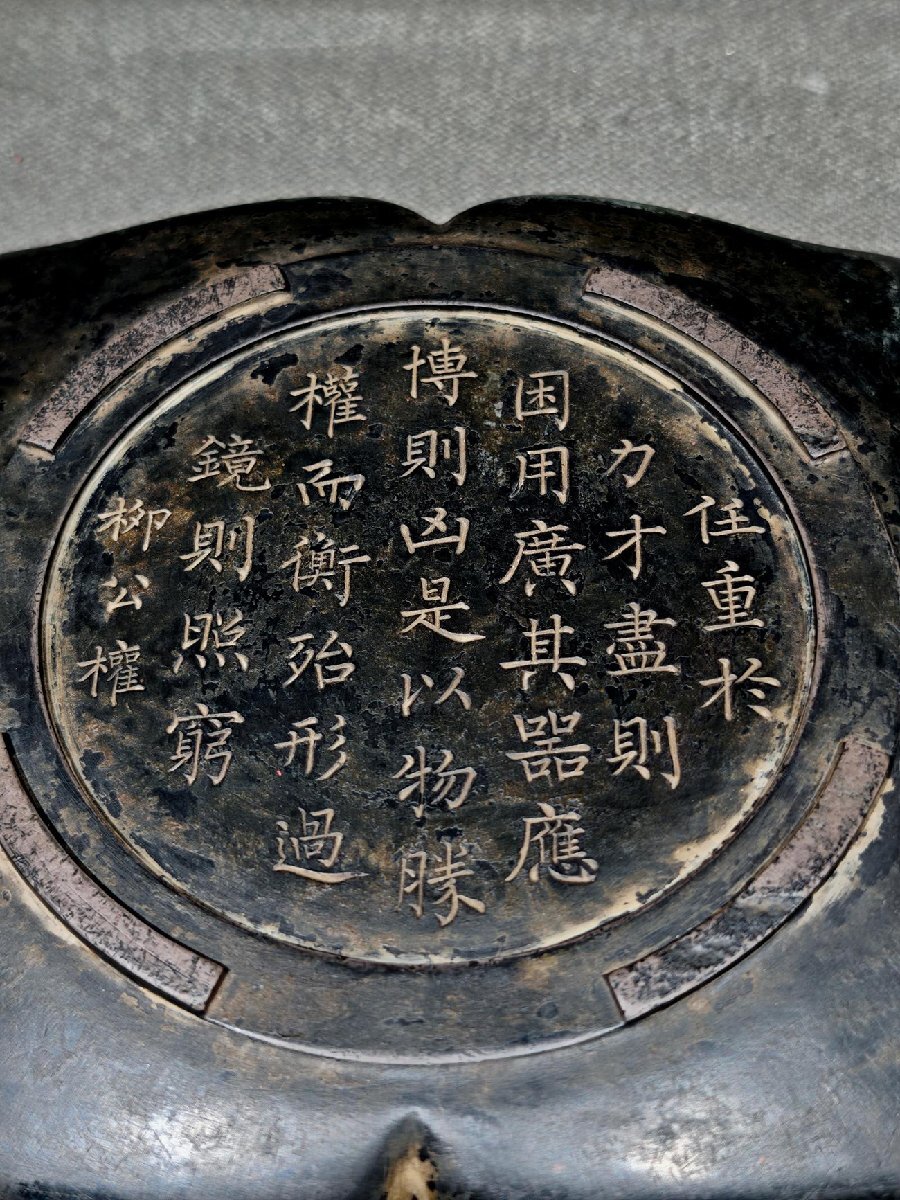 任重於
力才盡則
困用廣其器應
博則凶是以物勝
權而衡殆形過
鏡則照窮
柳公權